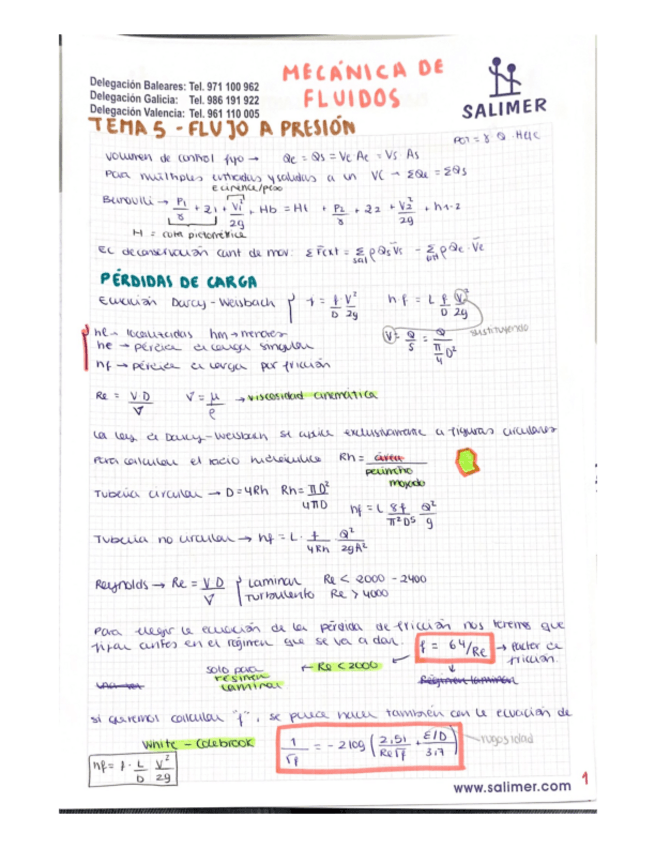 MECÁNICA DE
FLUIDOS
Delegación Baleares: Tel. 971 100 962
Delegación Galicia: Tel. 986 191 922
Delegación Valencia: Tel. 961 110 005
SALIMER
TEMA 5 - FLUJO A PRESIÓN
Volumen de control fijo → Qe = Qs = Ve Ae = Vs As
Para múltiples entradas y salidas a un VC → ΣQe = ΣQs
Bernoulli → P1/γ + z1 + V1²/2g + Hb = Ht + P2/γ + z2 + V2²/2g + h1-2
H = cota piezométrica
PÉRDIDAS DE CARGA
Ecuación Darcy-Weisbach { I = f/D V²/2g hf = L f/D V²/2g
sustituyendo
V = Q/S = Q/(π/4 D²)
he → localizadas hm → menores
he → pérdida de carga singular
hf → pérdida de carga por fricción
Re = V D/ν ν = μ/ρ → viscosidad cinemática
La ley de Darcy-Weisbach se aplica exclusivamente a figuras circulares
Para calcular el radio hidráulico Rh = área/perímetro mojado
Tubería circular → D = 4Rh Rh = πD²/4πD
hf = L 8f/π²D⁵ Q²/g
Tubería no circular → hf = L · f/4Rh · Q²/2gA²
Reynolds → Re = V D/ν { Laminar Re < 2000 - 2400
Turbulento Re > 4000
Para elegir la ecuación de la pérdida de fricción nos tenemos que
fijar antes en el régimen que se va a dar. f = 64/Re → factor de fricción.
solo para régimen laminar ← Re < 2000
Régimen laminar
si queremos calcular "f", se puede hacer también con la ecuación de
White - Colebrook 1/√f = -2log (2,51/Re√f + ε/D/3,7) rugosidad
hf = f · L/D V²/2g
www.salimer.com 1